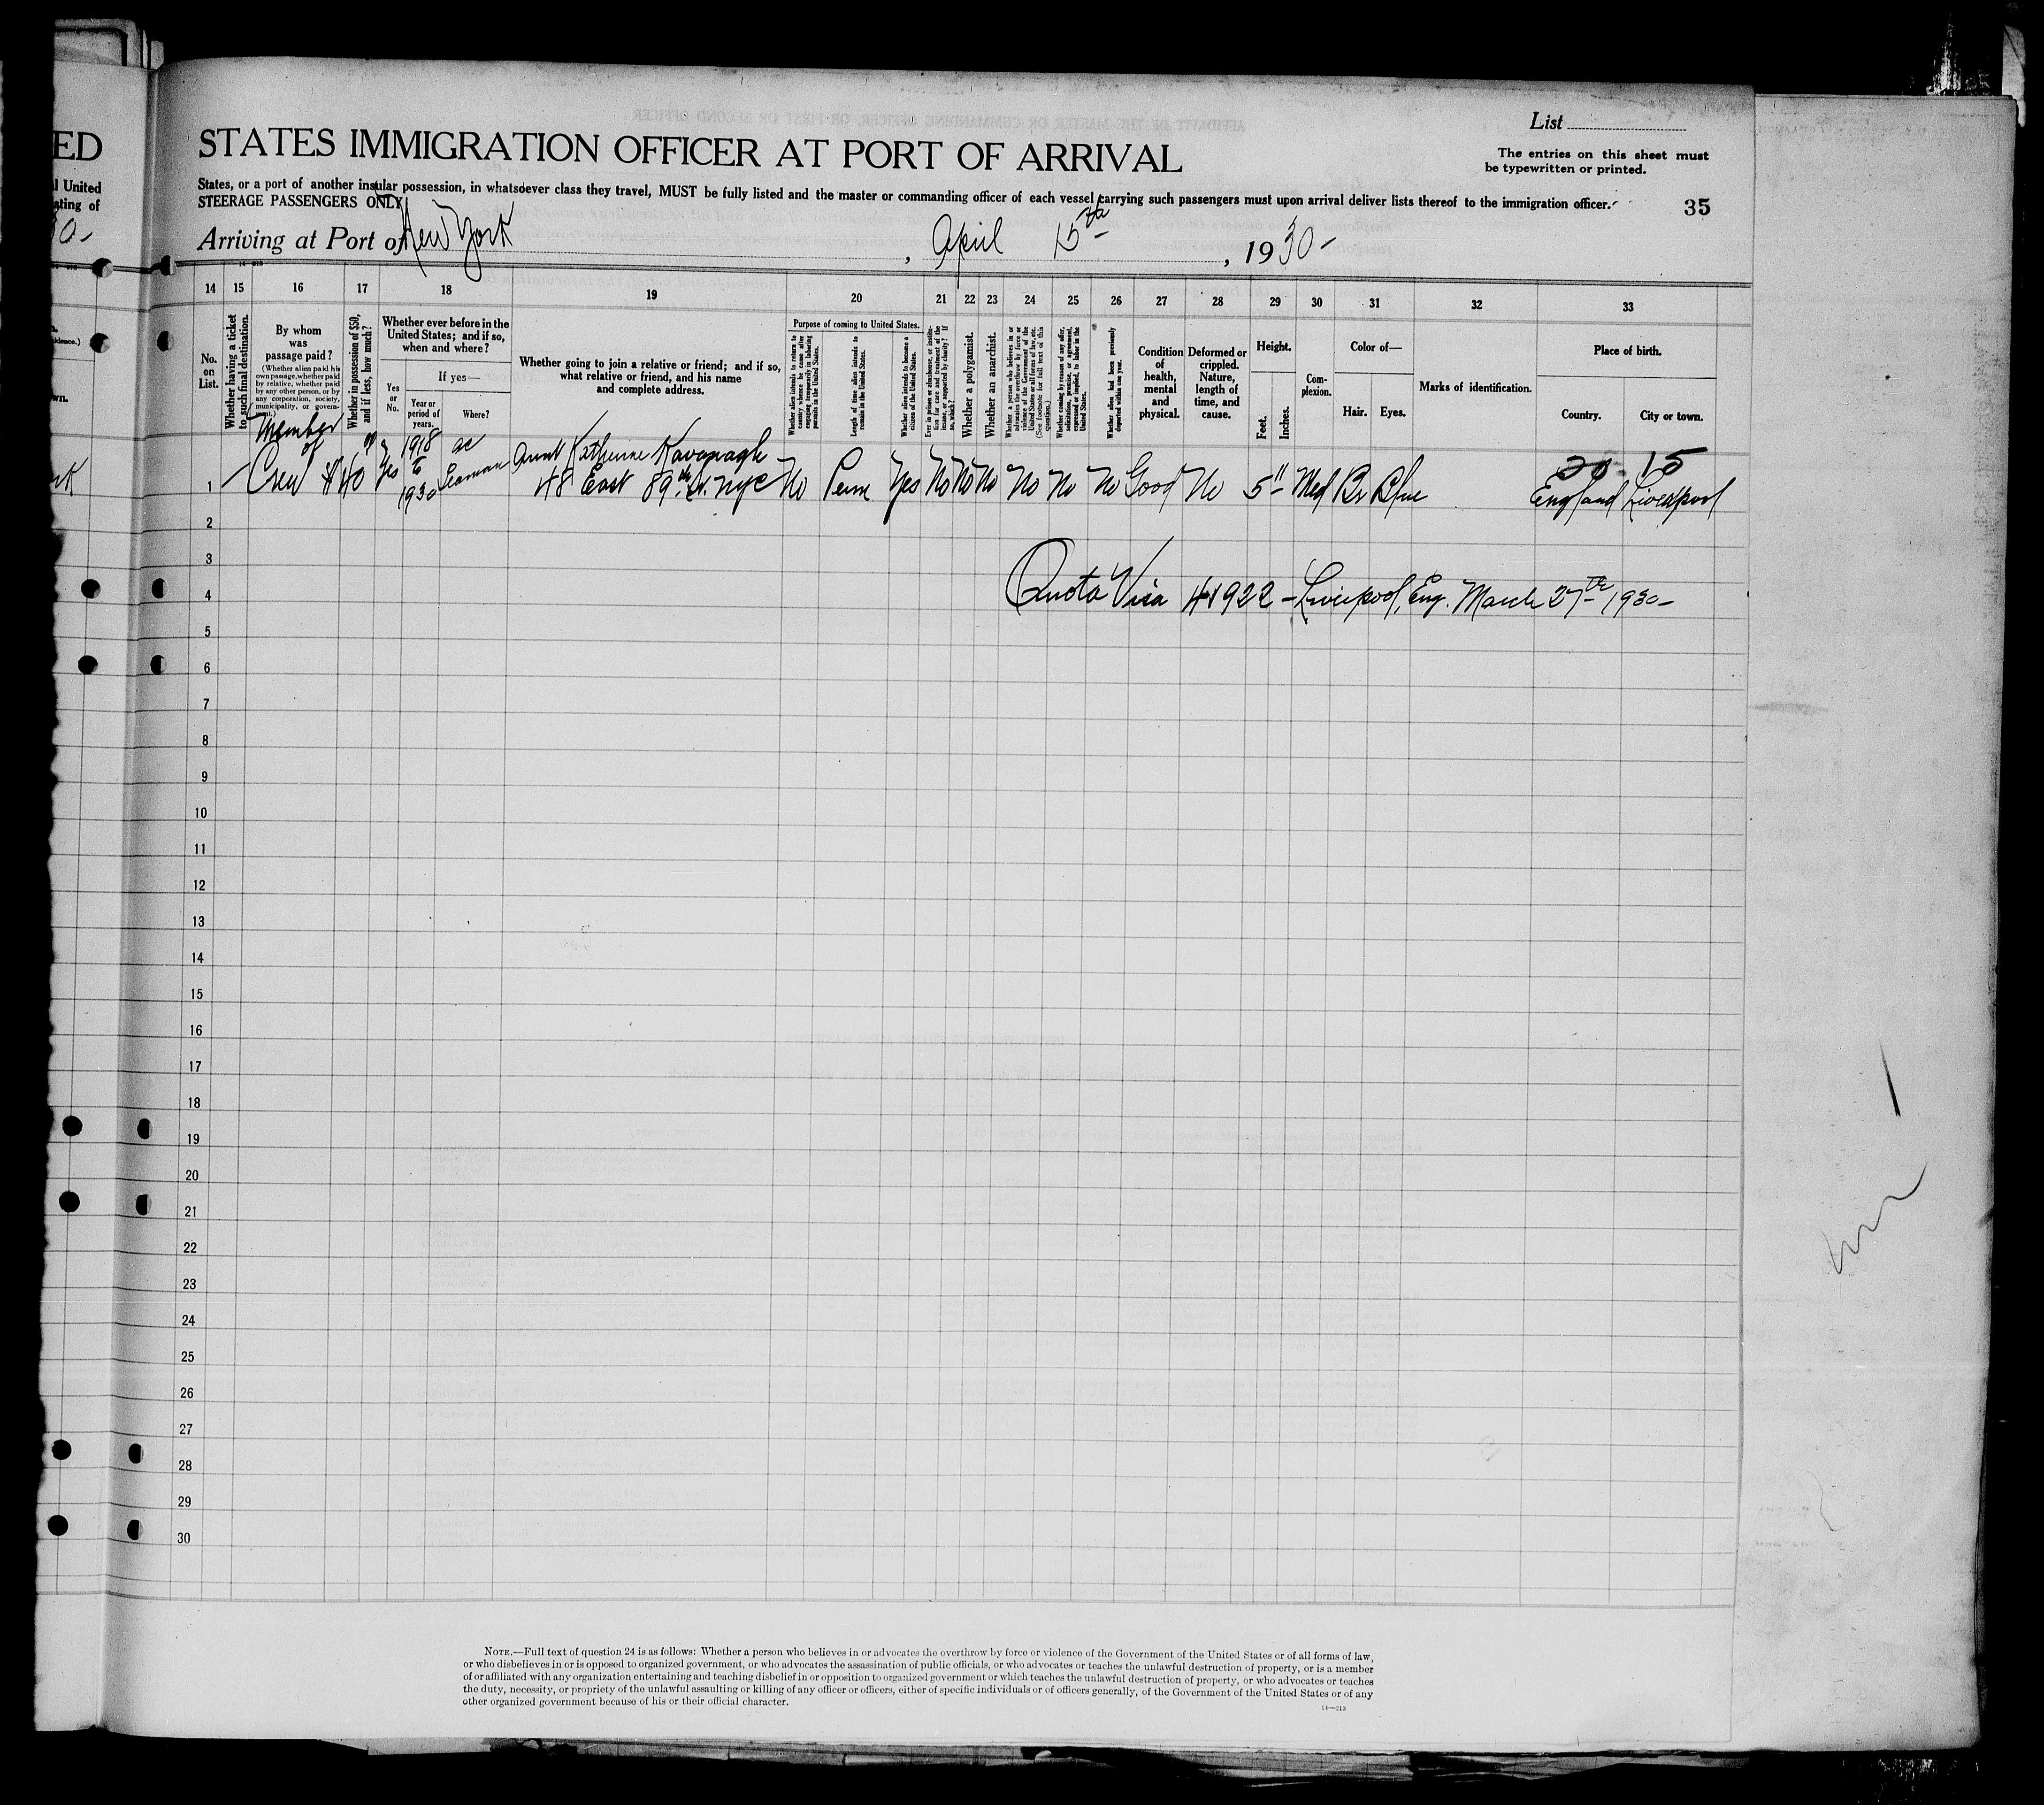 ED
STATES IMMIGRATION OFFICER AT PORT OF ARRIVAL
List
The entries on this sheet must
be typewritten or printed.
l United
sting of
States, or a port of another insular possession, in whatsoever class they travel, MUST be fully listed and the master or commanding officer of each vessel carrying such passengers must upon arrival deliver lists thereof to the immigration officer.
STEERAGE PASSENGERS ONLY
35
Arriving at Port of New York, April 15th, 1930-
14 15 16 17 18 19 20 21 22 23 24 25 26 27 28 29 30 31 32 33
No. on List.
Whether having a ticket to such final destination.
By whom was passage paid?
(Whether alien paid his own passage, whether paid by relative, whether paid by any other person, or by any corporation, society, municipality, or government.)
Whether in possession of $50, and if less, how much?
Whether ever before in the United States; and if so, when and where?
Yes or No.
If yes—
Year or period of years.
Where?
Whether going to join a relative or friend; and if so, what relative or friend, and his name and complete address.
Purpose of coming to United States.
Whether alien intends to return to country whence he came after engaging temporarily in laboring pursuits in the United States.
Length of time alien intends to remain in the United States.
Whether alien intends to become a citizen of the United States.
Ever in prison or almshouse, or institution for care and treatment of the insane, or supported by charity? If so, which?
Whether a polygamist.
Whether an anarchist.
Whether a person who believes in or advocates the overthrow by force or violence of the Government of the United States or all forms of law, etc. (See footnote for full text of this question.)
Whether coming by reason of any offer, solicitation, promise, or agreement, expressed or implied, to labor in the United States.
Whether alien had been previously deported within one year.
Condition of health, mental and physical.
Deformed or crippled. Nature, length of time, and cause.
Height.
Feet.
Inches.
Complexion.
Color of—
Hair.
Eyes.
Marks of identification.
Place of birth.
Country.
City or town.
Member 1918 as Aunt Katherine Kavanagh 20 15
1 of Crew $40 Yes to 1930 Seaman 48 East 89th St. NYC No Perm Yes No No No No No No Good No 5" Med Br Blue England Liverpool
2
3
4 Quota Visa #1922 - Liverpool, Eng. March 27th 1930-
5
6
7
8
9
10
11
12
13
14
15
16
17
18
19
20
21
22
23
24
25
26
27
28
29
30
NOTE.—Full text of question 24 is as follows: Whether a person who believes in or advocates the overthrow by force or violence of the Government of the United States or of all forms of law,
or who disbelieves in or is opposed to organized government, or who advocates the assassination of public officials, or who advocates or teaches the unlawful destruction of property, or is a member
of or affiliated with any organization entertaining and teaching disbelief in or opposition to organized government or which teaches the unlawful destruction of property, or who advocates or teaches
the duty, necessity, or propriety of the unlawful assaulting or killing of any officer or officers, either of specific individuals or of officers generally, of the Government of the United States or of any
other organized government because of his or their official character.
14—213